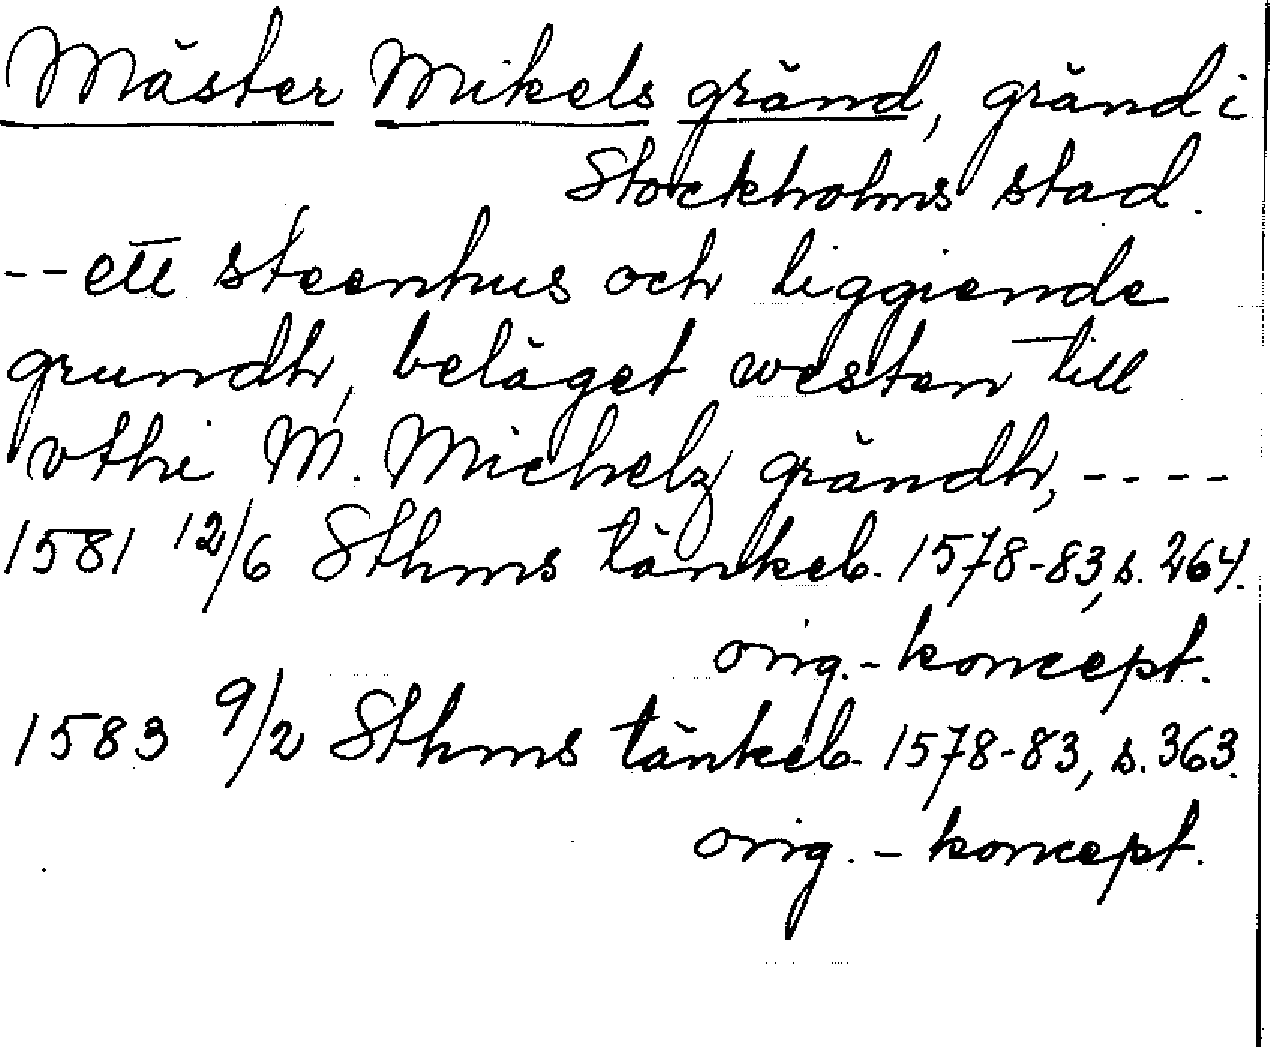 Mäster Mikels gränd, gränd i
Stockholms stad.
-- ett steenhus och liggiende
grundh, beläget westan till
vthi M. Michelz grändh, ----
1581 12/6 Sthms tänkeb. 1578-83, s. 264.
orig.-koncept.
1583 9/2 Sthms tänkeb. 1578-83, s. 363.
orig.-koncept.